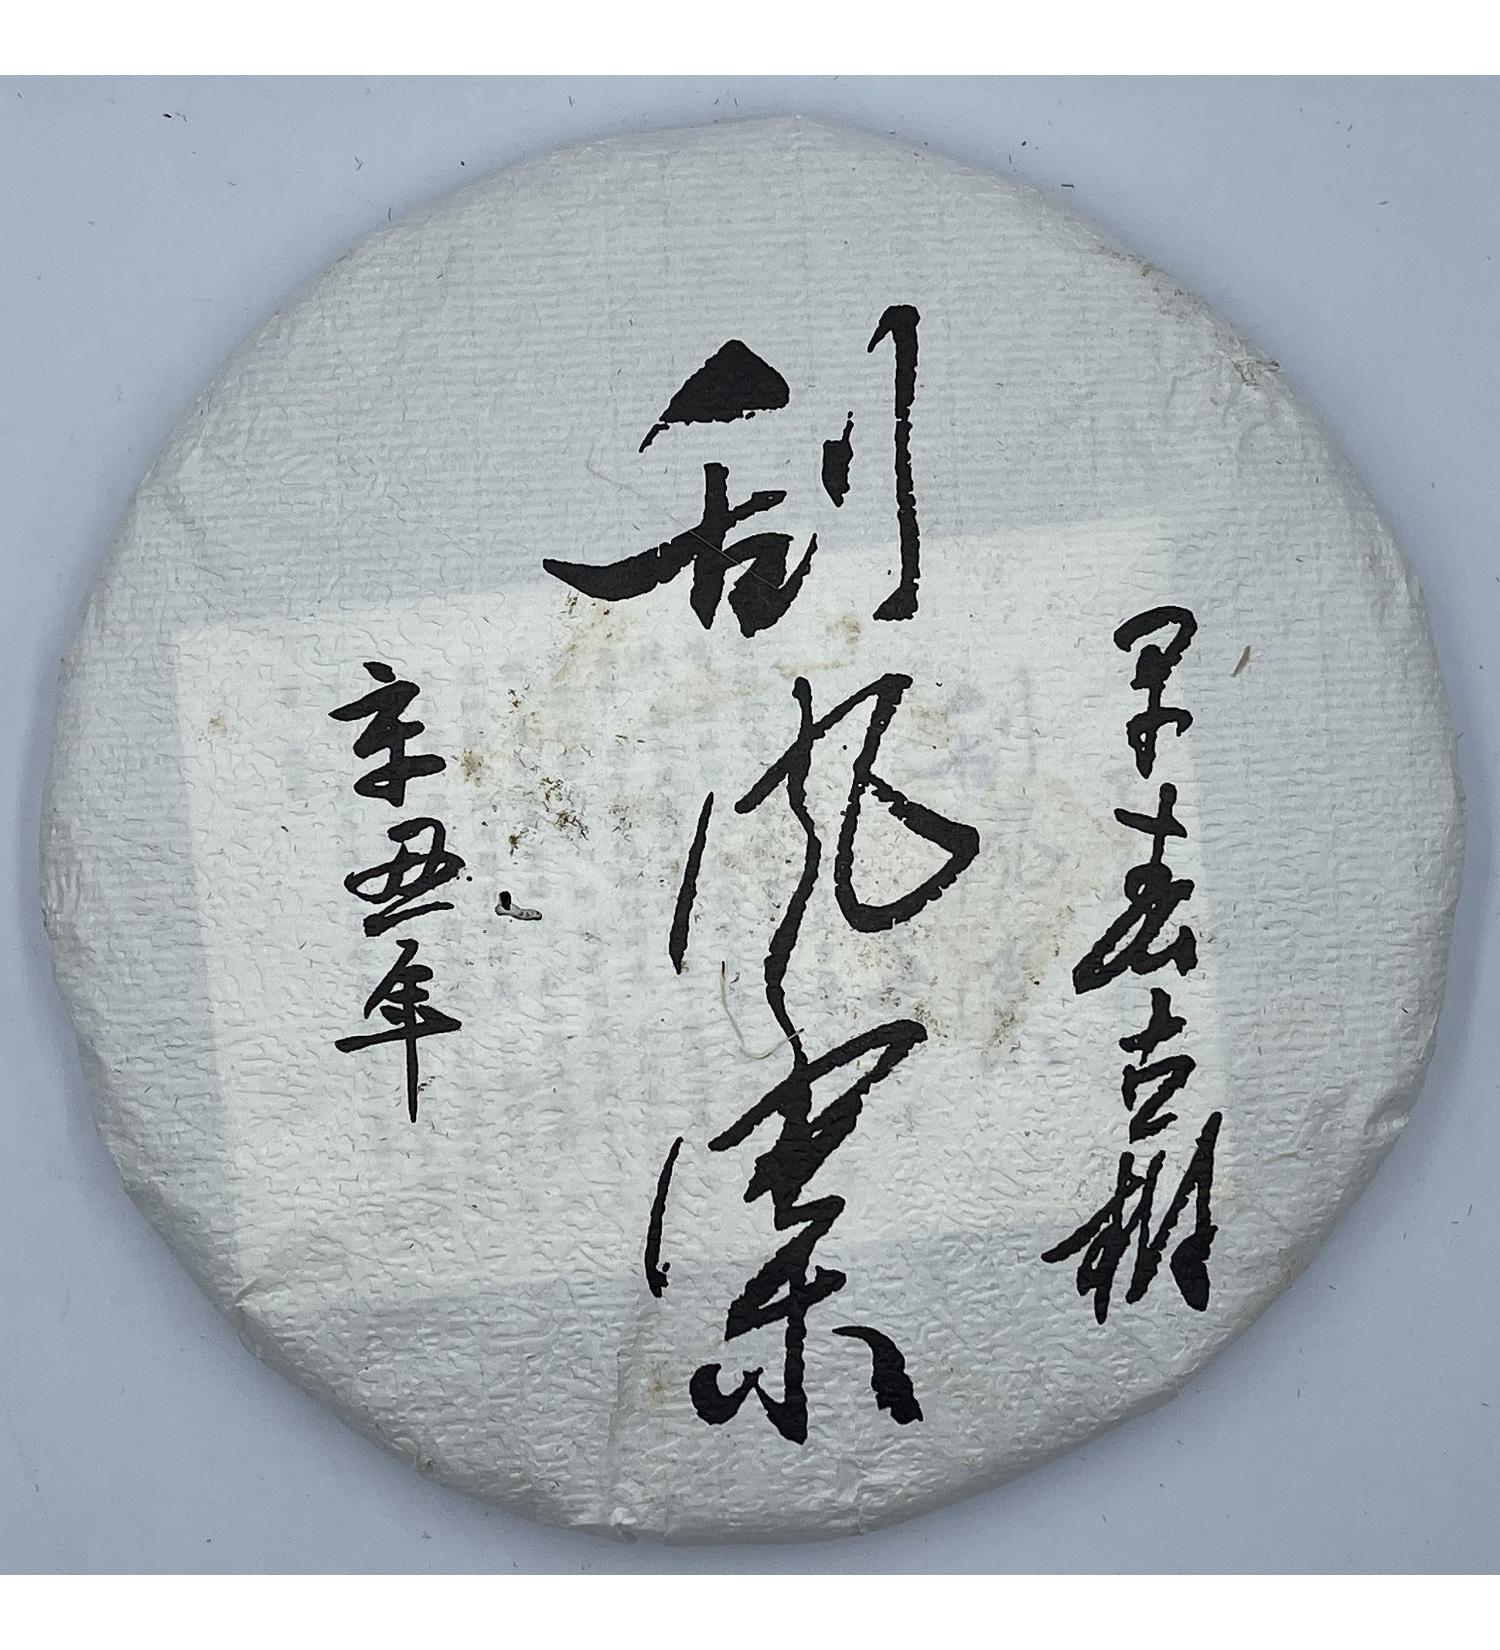 早春古树
刮风寨
辛丑年